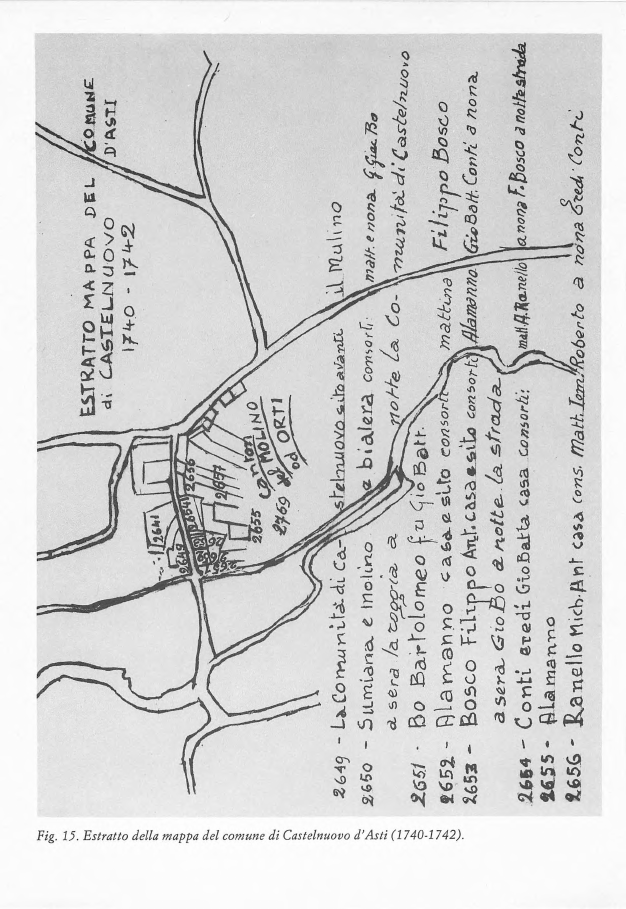 ESTRATTO MAPPA DEL COMUNE
di CASTELNUOVO D'ASTI
1740 - 1742
2641
2649
2654
2656
2657
2655
Cantori
del MOLINO
od ORTI
2769
2649 - La Comunità di Ca- stelnuovo sito avanti il Mulino
2650 - Sumiana e Molino e bialera consorti: matt. e nona G. Giac Bo
a sera la roggia a notte la Co- munità di Castelnuovo
2651 - Bo Bartolomeo fu Gio Batt.
2652 - Alamanno casa e sito consorti mattina Filippo Bosco
2653 - Bosco Filippo Ant. casa e sito consorti Alamanno Gio Batt. Conti a nona
a sera Gio Bo a notte la strada
2654 - Conti eredi Gio Batta casa consorti: matt. A. Ranello a nona F. Bosco a notte strada
2655 - Alamanno
2656 - Ranello Mich. Ant casa cons. Matt. Roberto a nona Eredi Conti
Fig. 15. Estratto della mappa del comune di Castelnuovo d'Asti (1740-1742).